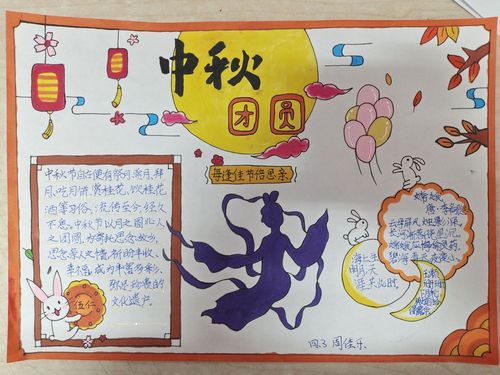 中秋
团圆
每逢佳节倍思亲
中秋节自古便有祭月、赏月、拜
月、吃月饼、赏桂花、饮桂花
酒等习俗，流传至今，经久
不息。中秋节以月之圆兆人
之团圆，为寄托思念故乡，
思念亲人之情，祈盼丰收、
幸福，成为丰富多彩、
弥足珍贵的
文化遗产。
伍仁
嫦娥
唐·李商隐
云母屏风烛影深，
长河渐落晓星沉。
嫦娥应悔偷灵药，
碧海青天夜夜心。
海上生
明月，天
涯共此时
四.3 周佳乐